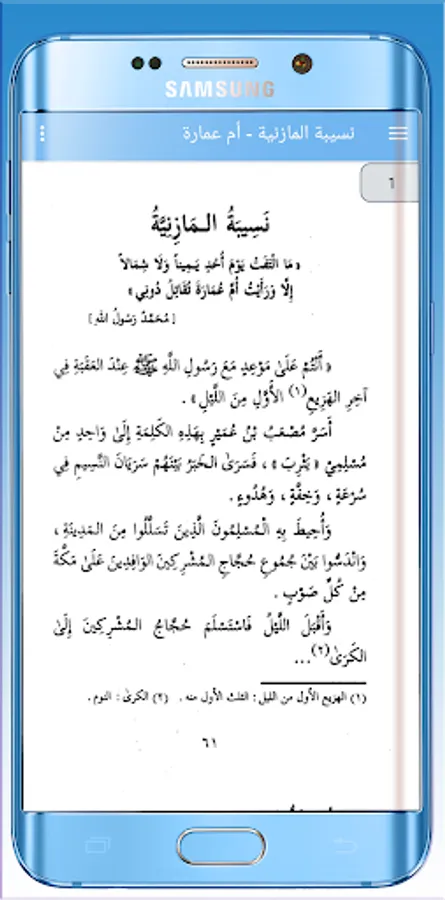 SAMSUNG
نسيبة المازنية - أم عمارة
1
نَسِيبَةُ الـمَازِنِيَّةُ
« مَا الْتَفَتُّ يَوْمَ أُحُدٍ يَـمِيناً وَلَا شِمَالاً
إِلَّا وَرَأَيْتُ أُمَّ عُمَارَةَ تُقَاتِلُ دُونِي »
[ مُحَمَّدٌ رَسُولُ اللهِ ]
« أَنْتُمْ عَلَىٰ مَوْعِدٍ مَعَ رَسُولِ اللَّهِ ﷺ عِنْدَ العَقَبَةِ فِي
آخِرِ الهَزِيعِ(١) الأَوَّلِ مِنَ اللَّيْلِ » .
أَسَرَّ مُصْعَبُ بْنُ عُمَيْرٍ بِهَذِهِ الكَلِمَةِ إِلَىٰ وَاحِدٍ مِنْ
مُسْلِمِيْ « يَثْرِبَ » ، فَسَرَىٰ الخَبَرُ بَيْنَهُمْ سَرَيَانَ النَّسِيمِ فِي
سُرْعَةٍ ، وَخِفَّةٍ ، وَهُدُوءٍ .
وَأُحِيطَ بِهِ الْـمُسْلِمُونَ الَّذِينَ تَسَلَّلُوا مِنَ الـمَدِينَةِ ،
وَانْدَسُّوا بَيْنَ جُمُوعِ حُجَّاجِ المُشْرِكِينَ الوَافِدِينَ عَلَىٰ مَكَّةَ
مِنْ كُلِّ صَوْبٍ .
وَأَقْبَلَ اللَّيْلُ فَاسْتَسْلَمَ حُجَّاجُ الـمُشْرِكِينَ إِلَىٰ
الكَرَىٰ(٢)...
(١) الهزيع الأول من الليل : الثلث الأول منه . (٢) الكرىٰ : النوم .
٦١